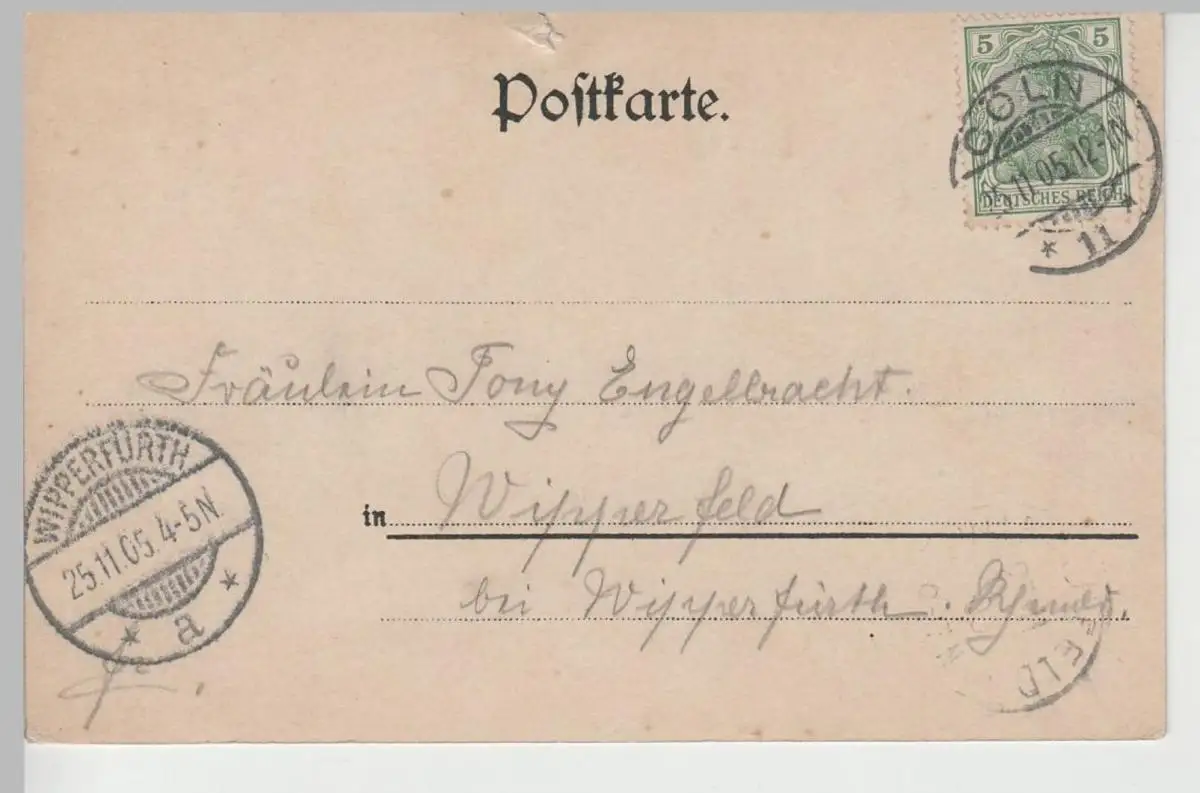 Postkarte.
5 5
DEUTSCHES REICH
CÖLN
11.05.12-1N
* 11 *
Fräulein Tony Engelbracht.
in Wipperfeld
bei Wipperfürth.
WIPPERFÜRTH
25.11.05.4-5N.
* a *
FELD